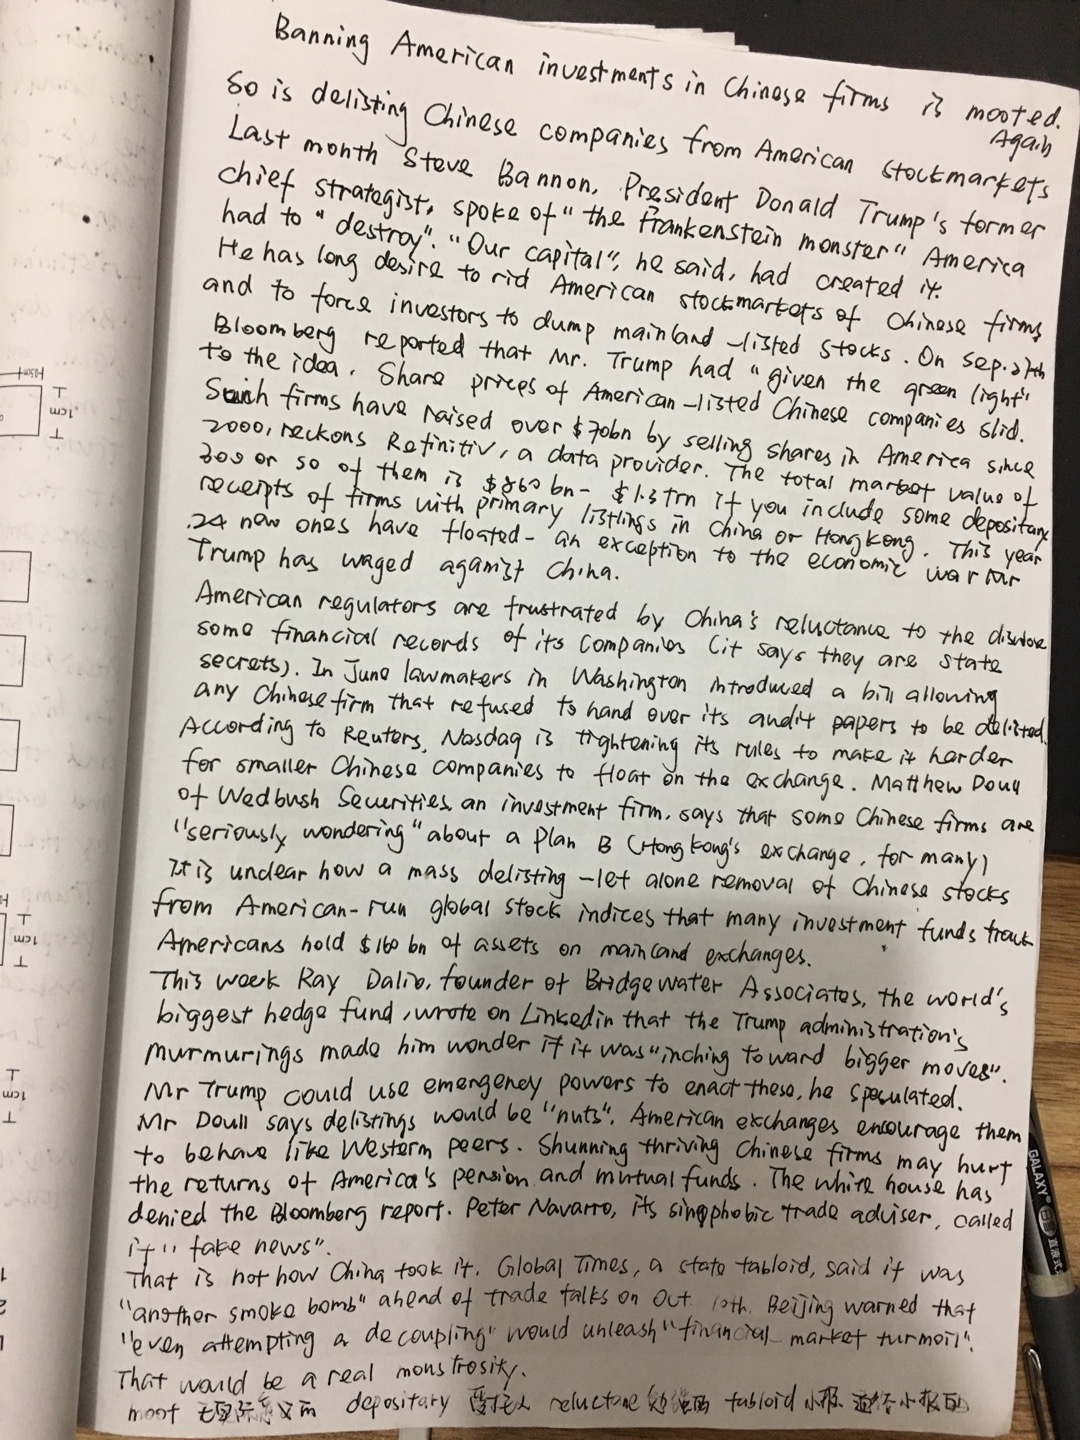 Banning American investments in Chinese firms is mooted.
Again
So is delisting Chinese companies from American stockmarkets
Last month Steve Bannon, President Donald Trump's former
chief strategist, spoke of "the Frankenstein monster" America
had to "destroy". "Our capital", he said, had created it.
He has long desire to rid American stockmarkets of Chinese firms
and to force investors to dump mainland-listed stocks. On Sep. 27th
Bloomberg reported that Mr. Trump had "given the green light"
to the idea. Share prices of American-listed Chinese companies slid.
Such firms have raised over $70bn by selling shares in America since
2000, reckons Refinitiv, a data provider. The total market value of
200 or so of them is $860 bn- $1.3 trn if you include some depositary
receipts of firms with primary listings in China or Hong Kong. This year
24 new ones have floated- an exception to the economic war Mr
Trump has waged against China.
American regulators are frustrated by China's reluctance to the disclose
some financial records of its companies (it says they are state
secrets). In June lawmakers in Washington introduced a bill allowing
any Chinese firm that refused to hand over its audit papers to be delisted.
According to Reuters, Nasdaq is tightening its rules to make it harder
for smaller Chinese companies to float on the exchange. Matthew Doull
of Wedbush Securities, an investment firm, says that some Chinese firms are
"seriously wondering" about a plan B (Hong Kong's exchange, for many)
It is unclear how a mass delisting -let alone removal of Chinese stocks
from American-run global stock indices that many investment funds track
Americans hold $160 bn of assets on mainland exchanges.
This week Ray Dalio, founder of Bridgewater Associates, the world's
biggest hedge fund, wrote on Linkedin that the Trump administration's
murmurings made him wonder if it was "inching toward bigger moves".
Mr Trump could use emergency powers to enact these, he speculated.
Mr Doull says delistings would be "nuts". American exchanges encourage them
to behave like Western peers. Shunning thriving Chinese firms may hurt
the returns of America's pension and mutual funds. The white house has
denied the Bloomberg report. Peter Navarro, its sinophobic trade adviser, called
it "fake news".
That is not how China took it. Global Times, a state tabloid, said it was
"another smoke bomb" ahead of trade talks on Oct. 10th. Beijing warned that
"even attempting a decoupling" would unleash "financial market turmoil".
That would be a real monstrosity.
moot 无实际意义的 depositary 受托人 reluctane tabloid 小报
GALAXY
1cm
1cm
1cm